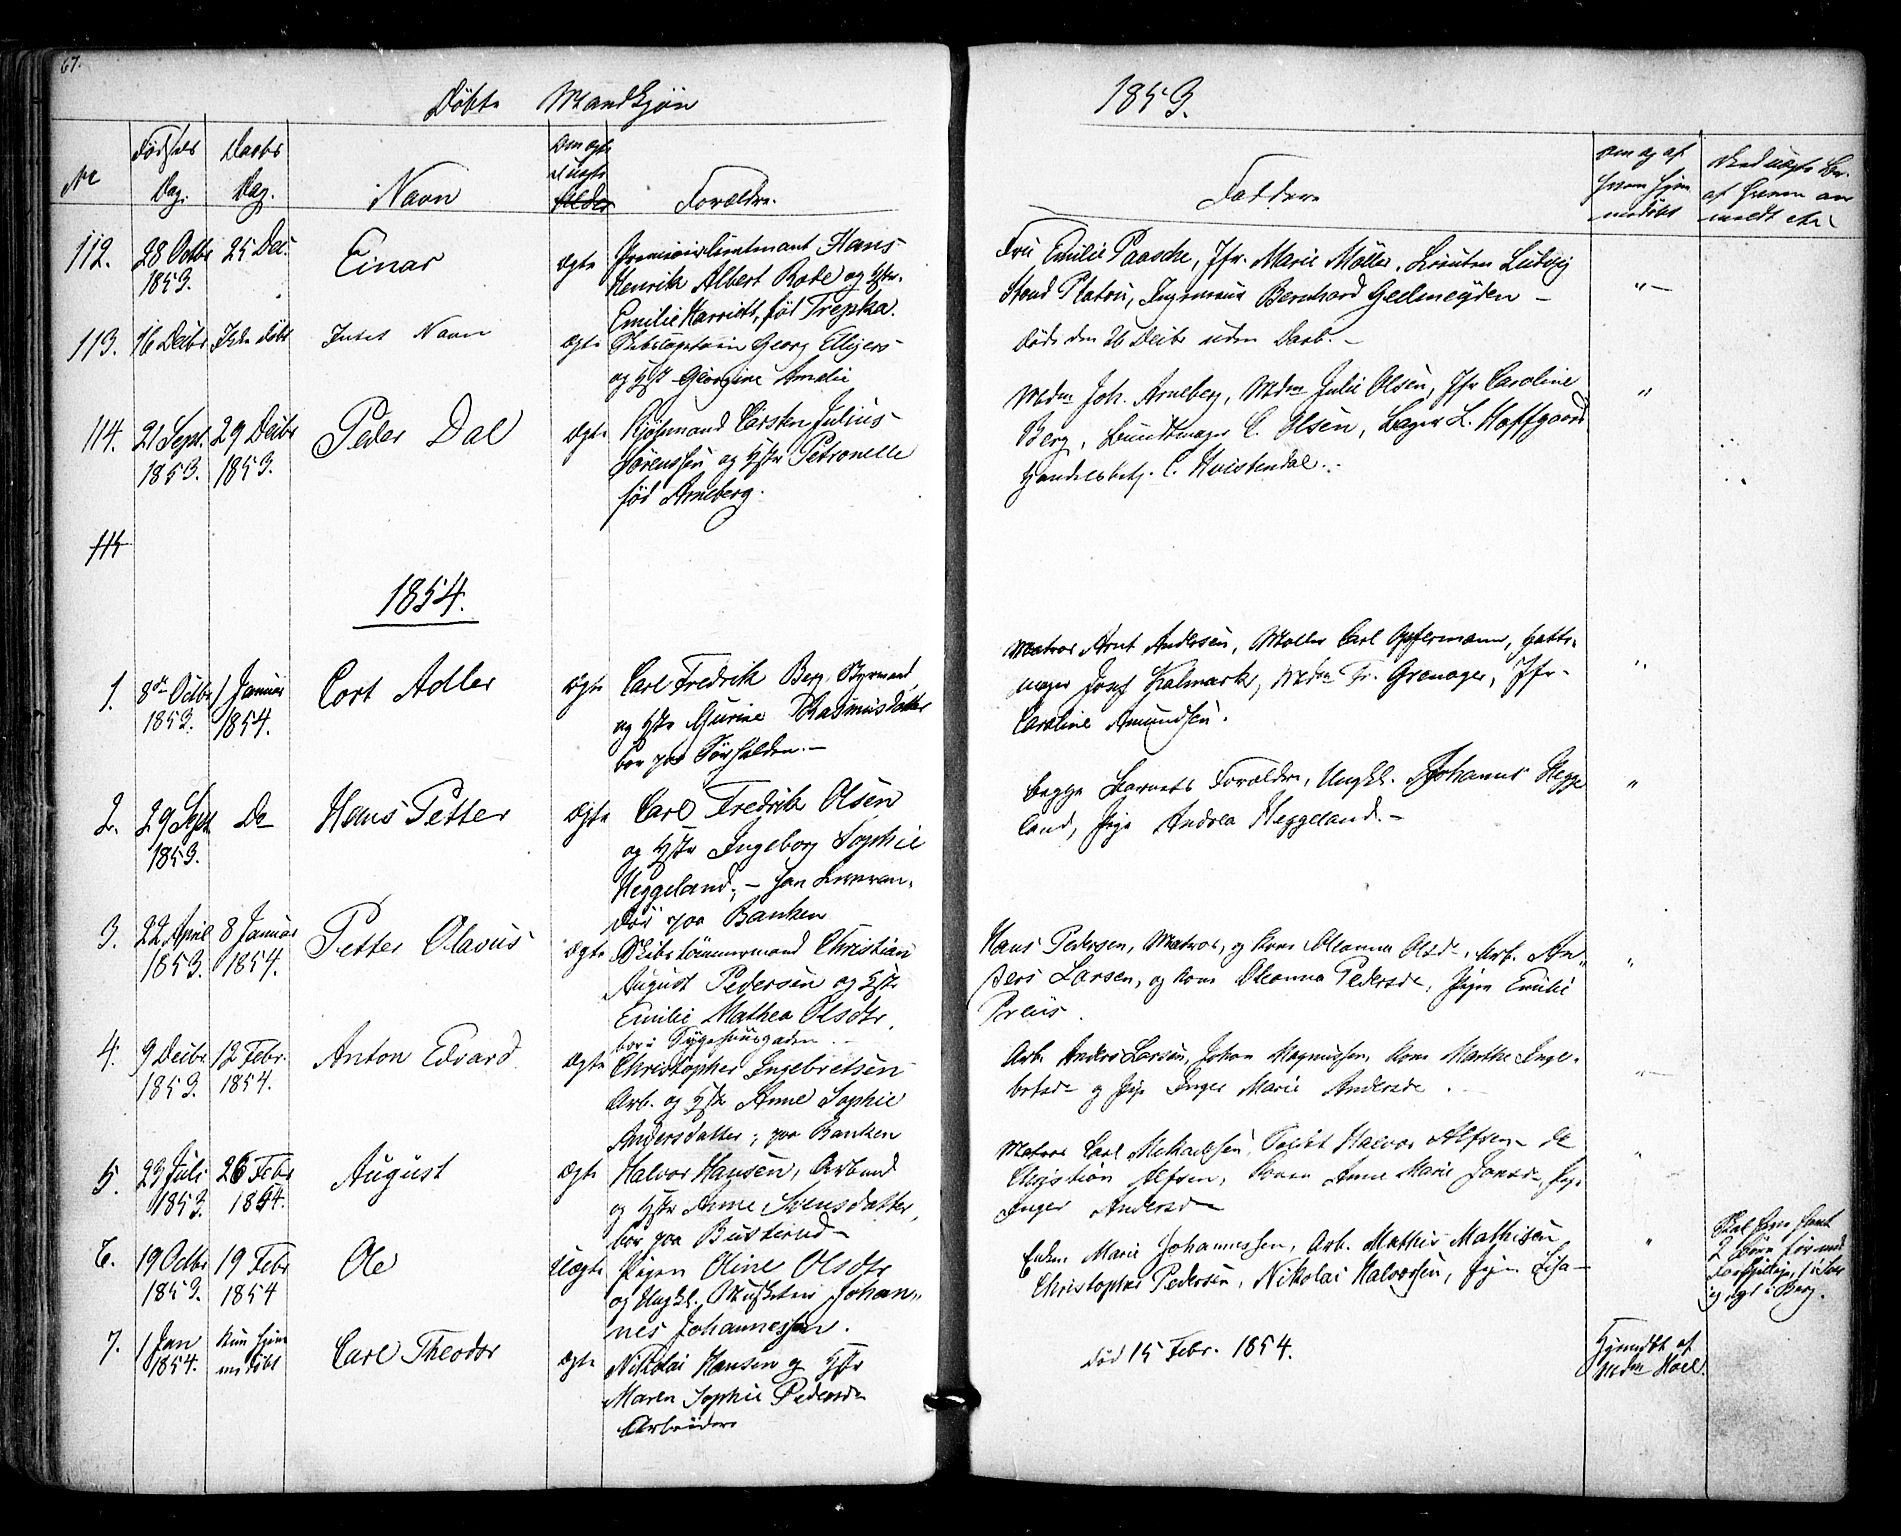 67.
Döbte Mandkjøn 1853.
No
Fødsels Dag.
Daabs Dag.
Navn
Om ægte el uægte
Alder
Forældre.
Faddere
Om og af hvem hjemmedøbt
112. 28 Octbr 1853. 25 Dec. Einar ægte Premierlieutenant Hans
Henrik Albert Bode og Hstr.
Emilie Harriett, föd Trepka.
Fru Emilie Paasche, Jfr. Marie Möller, Ludvig
Bernhard Geelmeyden —
113. 16 Decbr Ikke döbt Intet Navn ægte Skibskaptein Georg Elligers
og Hstr Georgine Amalie
Döde den 26 Decbr uden Daab. —
114. 21 Sept. 1853. 29 Decbr 1853. Peder Dal ægte Kjøbmand Carsten Julius
Sörenssen og Hstr Petronelle
föd Arneberg.
Mdm Joh. Arneberg, Mdm Julie Olsen, Jfr Caroline
Berg, Bundtmager C. Olsen, Bager L. Hoffgaard
Handelsbetj. C. Hvistendal.
115
1854.
1. 8de Octbr 1853. 1 Januar 1854. Cort Adler ægte Carl Fredrik Berg, Styrmand
og Hstr Gurine Rasmusdatter
boe paa
Matros Arnt Andersen, Möller Carl Opfermann, Hatte-
mager Josef Kalmark, Mdm Fr. Grönager, Jfr.
Caroline Amundsen.
2. 29 Sept 1853. Do Hans Petter ægte Carl Fredrik Olsen
og Hstr Ingeborg Sophie
Heggeland, —
paa Banken
begge Barnets Forældre, Ungkl. Johannes Hegge
land, Pige Andrea Heggeland. —
3. 22 April 1853. 8 Januar 1854. Petter Olavus ægte Skibstömmermand Christian
August Pedersen og Hstr
Emilie Mathea Olsdtr.
bor i Sygehuusgaden
Hans Pedersen, Matros, og Kone Oleanna Olsd., Arb. An-
ders Larsen, og Kone Oleanna Pedersd., Pigen Emilie
Preüs.
4. 9 Decbr 1853. 12 Febr. 1854. Anton Edvard ægte Christopher Ingebretsen
Arb. og Hstr Anne Sophie
Andersdatter; paa Banken
Arb. Anders Larsen, Johan Magnussen, Kone Marthe Inge-
bretsd. og Pige Inger Marie Andersd.
5. 23 Juli 1853. 26 Febr 1854. August ægte Halvor Hansen, Arbmd
og Hstr Anne Svensdatter,
boe paa Busterud —
Matros Carl Mikaelsen, Halvor Alfsen
Christian Alfsen, Konen Anne Marie Jansd., Pige
Inger Andersd
6. 19 Octbr 1853. 19 Febr 1854 Ole Uægte Pigen Oline Olsdtr
og Ungkl. Musketeer Johan-
nes Johannessen.
Enken Marie Johannessen, Arb. Mathis Mathisen
Christopher Pedersen, Nikolai Halvorsen, Pigen Lisa
7. 1 Jan 1854. Kun hjemmedöbt Carl Theodor ægte Nikolai Hansen og Hstr
Maren Sophie Pedersd.
Arbeider
Död 15 Febr. 1854.
Hjemdöbt af
Mdm Hoel.